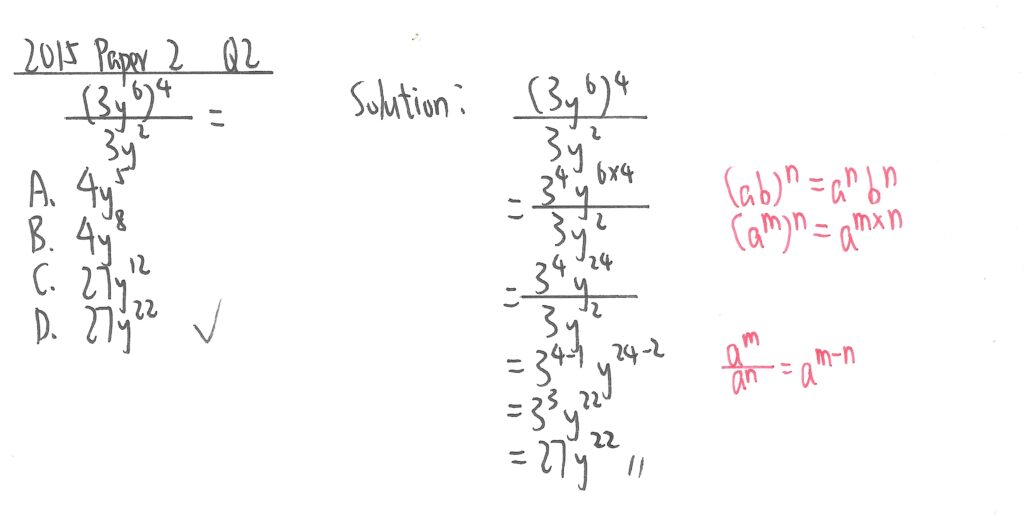 2015 Paper 2 Q2
(3y⁶)⁴ / 3y² =
A. 4y⁵
B. 4y⁸
C. 27y¹²
D. 27y²² ✓
Solution:
(3y⁶)⁴ / 3y²
= 3⁴y⁶ˣ⁴ / 3y²
= 3⁴y²⁴ / 3y²
= 3⁴⁻¹ y²⁴⁻²
= 3³y²²
= 27y²² //
(ab)ⁿ = aⁿbⁿ
(aᵐ)ⁿ = aᵐˣⁿ
aᵐ / aⁿ = aᵐ⁻ⁿ